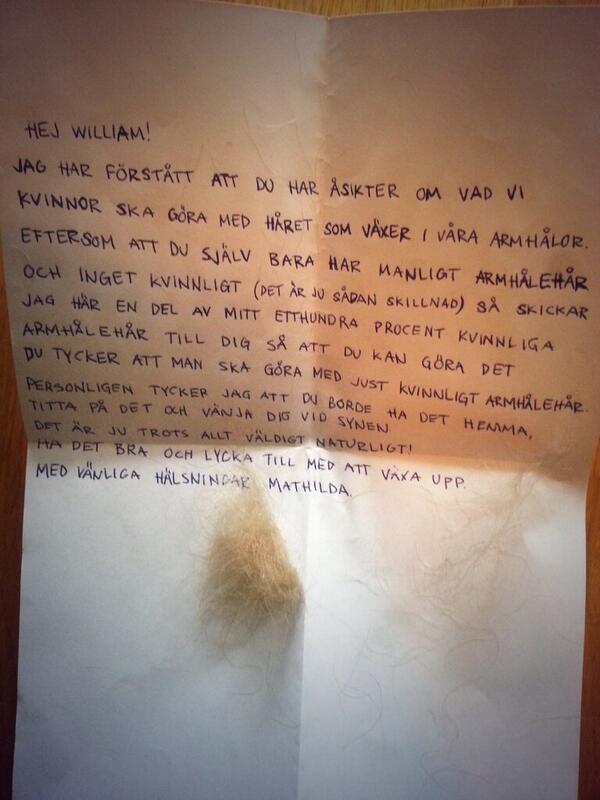 HEJ WILLIAM!
JAG HAR FÖRSTÅTT ATT DU HAR ÅSIKTER OM VAD VI
KVINNOR SKA GÖRA MED HÅRET SOM VÄXER I VÅRA ARMHÅLOR.
EFTERSOM ATT DU SJÄLV BARA HAR MANLIGT ARMHÅLEHÅR
OCH INGET KVINNLIGT (DET ÄR JU SÅDAN SKILLNAD) SÅ SKICKAR
JAG HÄR EN DEL AV MITT ETTHUNDRA PROCENT KVINNLIGA
ARMHÅLEHÅR TILL DIG SÅ ATT DU KAN GÖRA DET
DU TYCKER ATT MAN SKA GÖRA MED JUST KVINNLIGT ARMHÅLEHÅR.
PERSONLIGEN TYCKER JAG ATT DU BORDE HA DET HEMMA,
TITTA PÅ DET OCH VÄNJA DIG VID SYNEN.
DET ÄR JU TROTS ALLT VÄLDIGT NATURLIGT!
HA DET BRA OCH LYCKA TILL MED ATT VÄXA UPP.
MED VÄNLIGA HÄLSNINGAR MATHILDA.